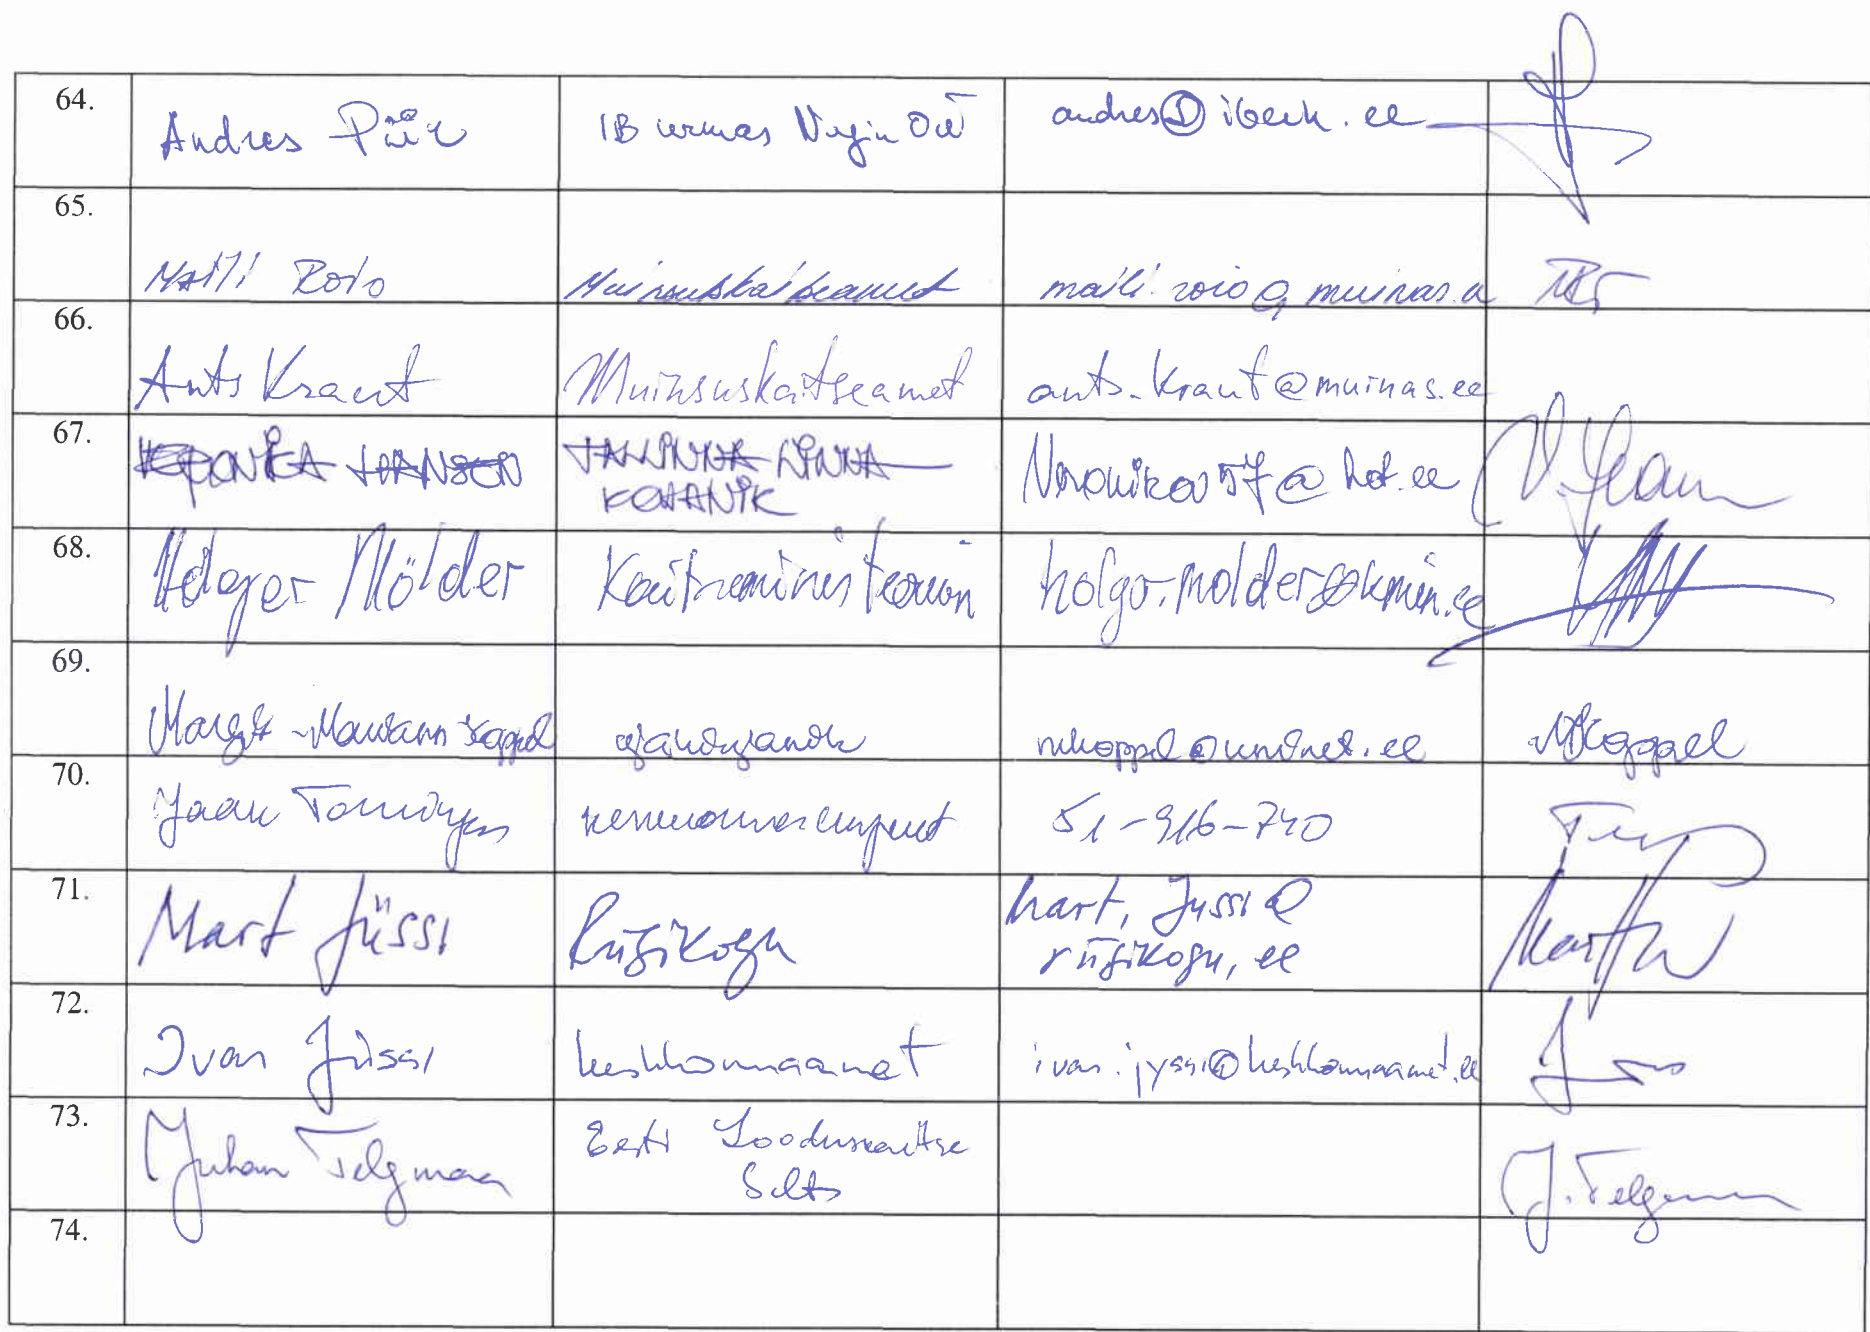 64. Andres Piir IB Urmas Nugin OÜ andres@ibeck.ee
65. Maili Roio Muinsuskaitseamet maili.roio@muinas.ee
66. Ants Kraut Muinsuskaitseamet ants.kraut@muinas.ee
67. VERONIKA TALLINNA LINNA
KODANIK Veronika57@hot.ee
68. Holger Mölder Kaitseministeerium holger.molder@kmin.ee
69. Margit-Mariann Koppel ajakirjanik mkoppel@uninet.ee MKoppel
70. Jaan 51-916-740
71. Mart Jüssi Riigikogu mart.jussi@
riigikogu.ee Mart
72. Ivar Jüssi Keskkonnaamet ivar.jyssi@keskkonnaamet.ee
73. Juhan Telgmaa Eesti Looduskaitse
Selts J. Telgmaa
74.